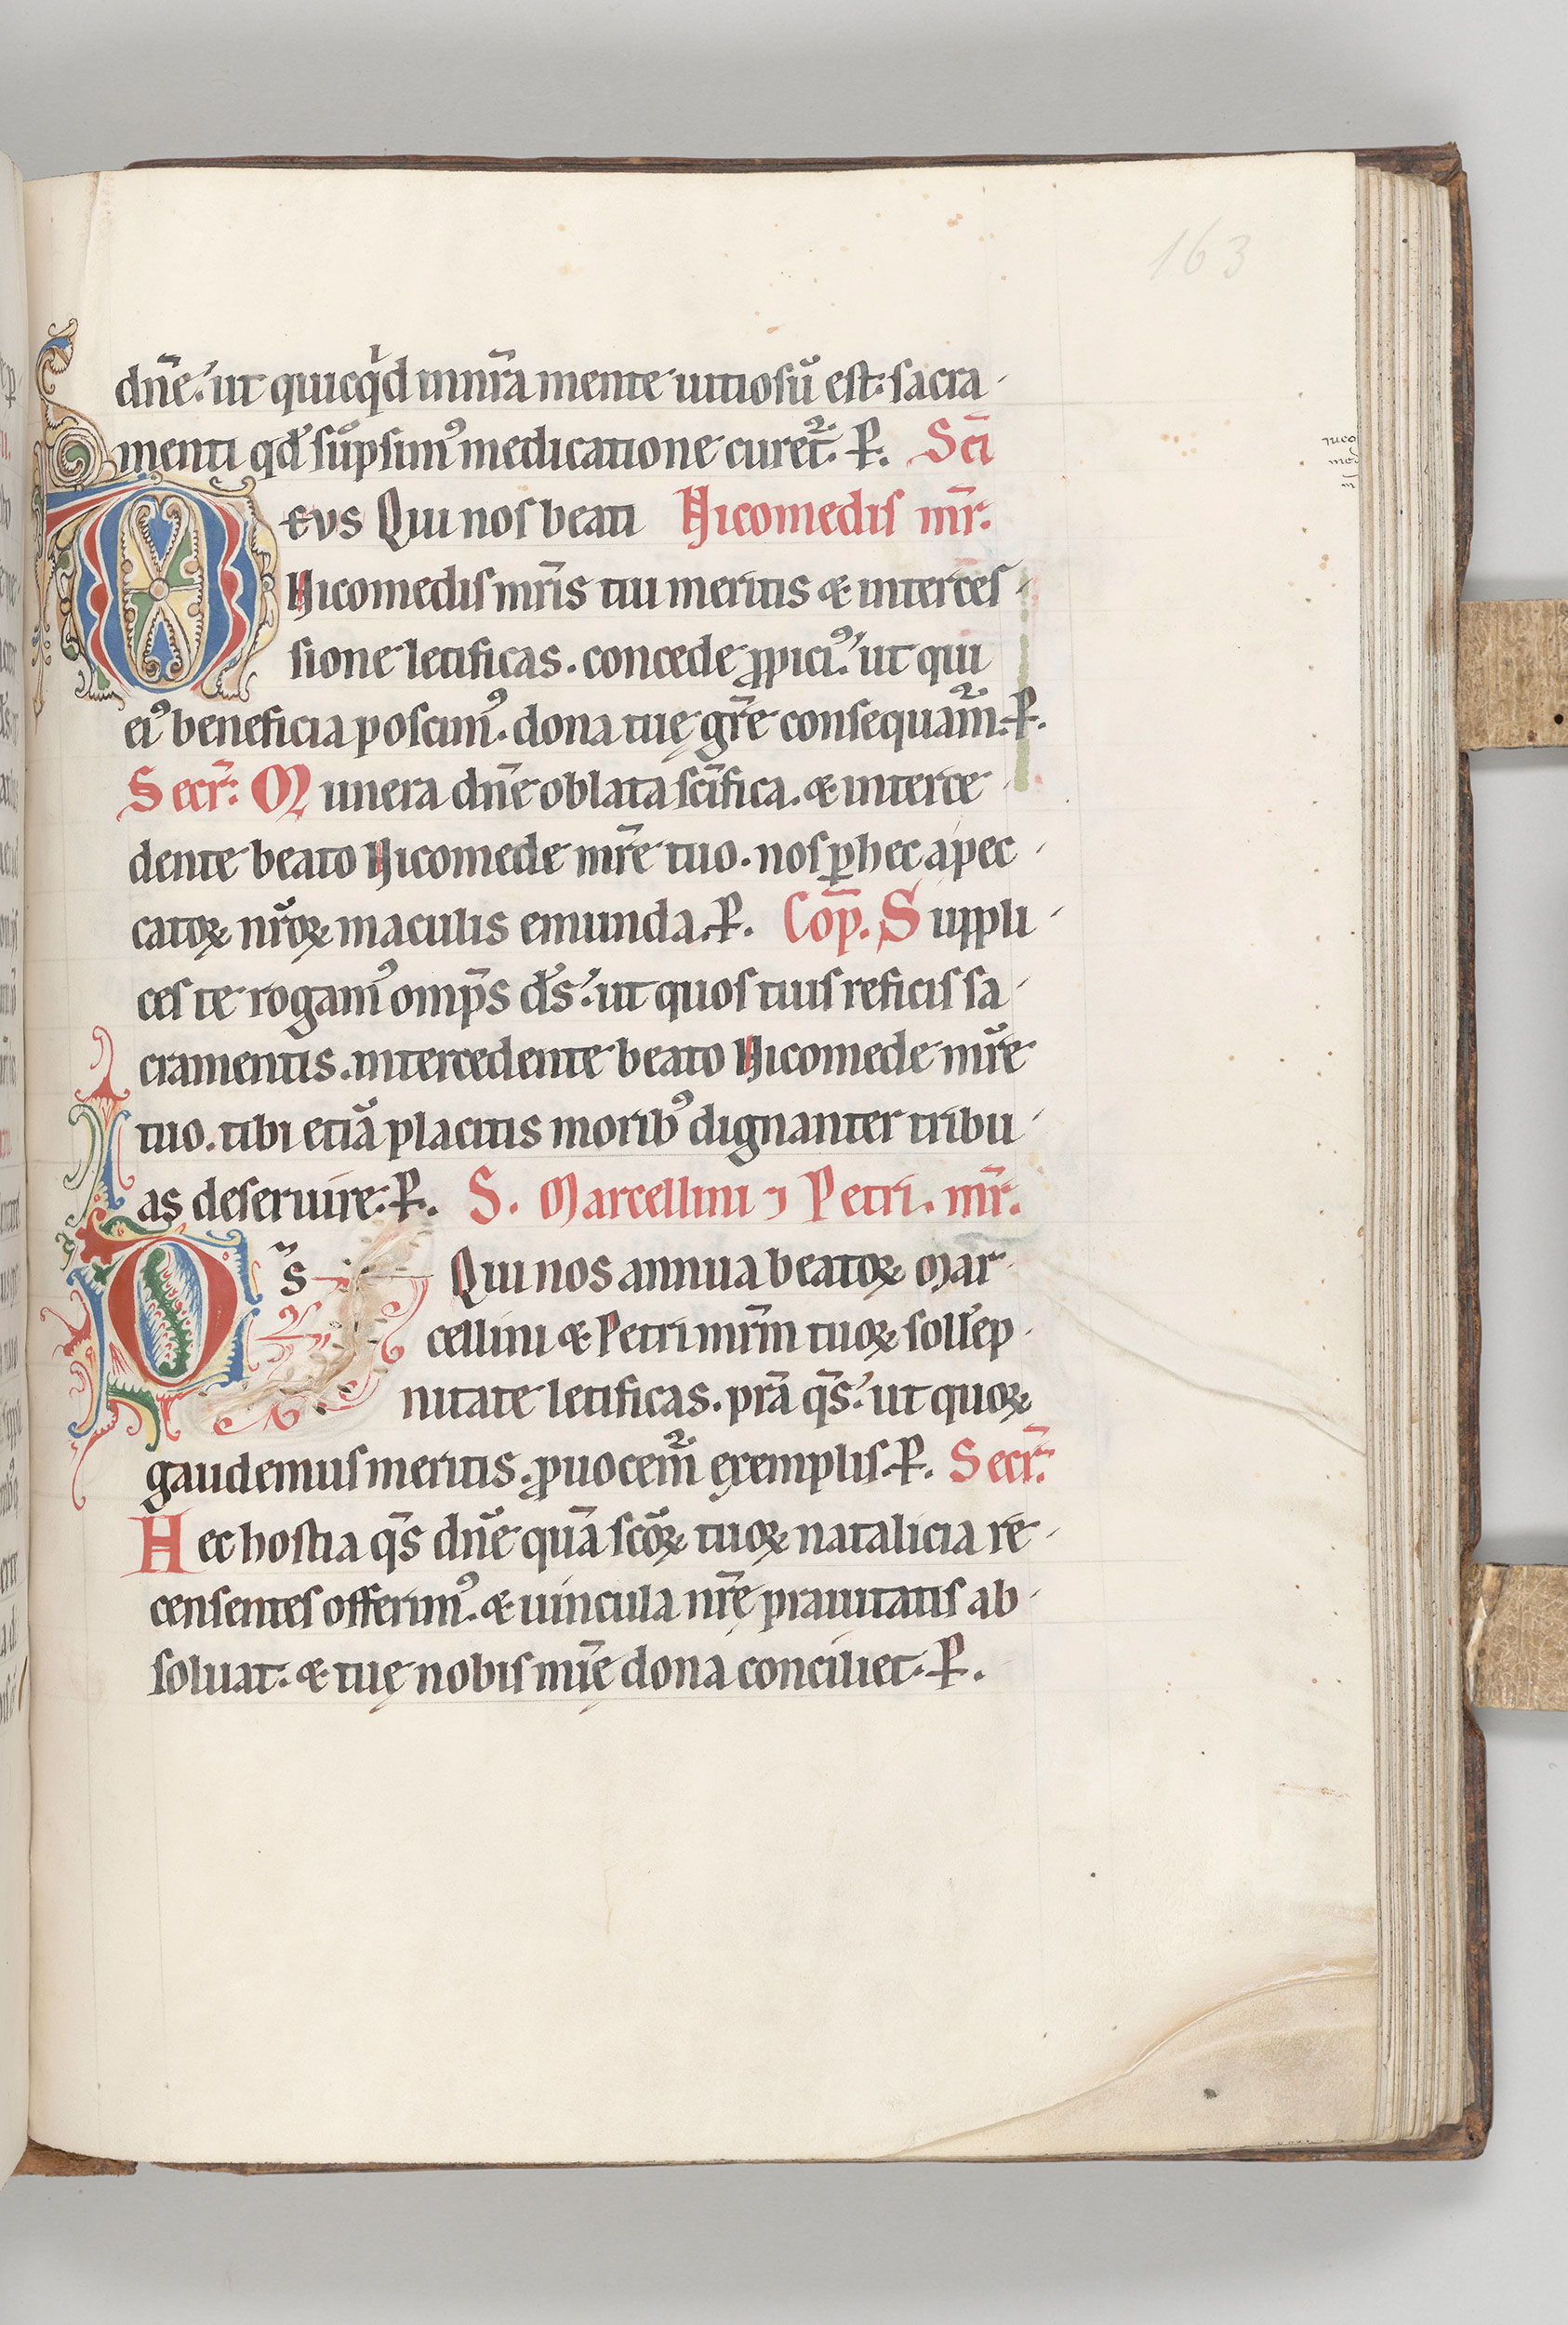 163
dn̄e. ut quicq̇d in nr̄a mente uitiosū est. sacra-
menti qđ sūpsimꝰ medicatione curet᷑. P̵. Sc̄i
Deus Qui nos beati Nicomedis mr̄.
Nicomedis mr̄is tui meritis & interces-
sione letificas. concede ꝓpiciꝰ. ut qui
eiꝰ beneficia poscimꝰ. dona tuę gr̄e consequam᷑. P̵.
Secr̄. Munera dn̄e oblata sc̄ifica. & interce
dente beato Nicomede mr̄e tuo. nos ꝑ hec a pec-
catoꝝ nr̄oꝝ maculis emunda. P̵. Cop̄. Suppli-
ces te rogamꝰ omp̄s d̄s. ut quos tuis reficis sa-
cramentis. intercedente beato Nicomede mr̄e
tuo. tibi etiā placitis moribꝰ dignanter tribu-
as deseruire. P̵. S. Marcellini ⁊ Petri. mr̄.
D̄s Qui nos annua beatoꝝ Mar-
cellini & Petri mr̄m tuoꝝ soll̄ep-
nitate letificas. pr̄a q̄s. ut quoꝝ
gaudemus meritis. ꝓuocem᷑ exemplis. P̵. Secr̄.
Hec hostia q̄s dn̄e quā sc̄oꝝ tuoꝝ natalicia re-
censentes offerimꝰ. & uincula nr̄ę prauitatis ab-
soluat. & tuę nobis mīę dona conciliet. P̵.